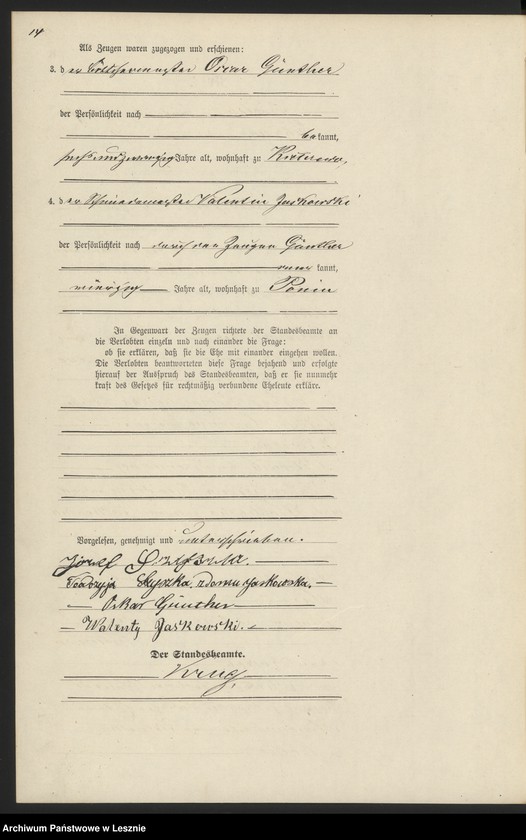 14
Als Zeugen waren zugezogen und erschienen:
3. der Oscar Günther
der Persönlichkeit nach
bekannt,
Jahre alt, wohnhaft zu
4. der Schmiedemeister Valentin Jaskowski
der Persönlichkeit nach durch den Zeugen Günther
kannt,
vierzig Jahre alt, wohnhaft zu Ponin
In Gegenwart der Zeugen richtete der Standesbeamte an
die Verlobten einzeln und nach einander die Frage:
ob sie erklären, daß sie die Ehe mit einander eingehen wollen.
Die Verlobten beantworteten diese Frage bejahend und erfolgte
hierauf der Ausspruch des Standesbeamten, daß er sie nunmehr
kraft des Gesetzes für rechtmäßig verbundene Eheleute erkläre.
Vorgelesen, genehmigt und unterschrieben.
Józef
z domu Jaskowska.
Oskar Günther
Walenty Jaskowski.
Der Standesbeamte.
Krug
Archiwum Państwowe w Lesznie